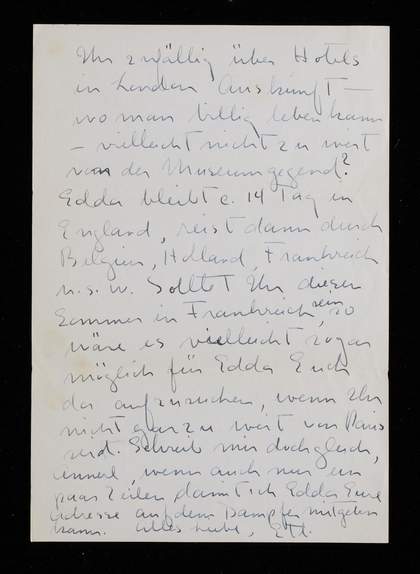 Ihr zufällig über Hotels
in London Auskunft —
wo man billig leben kann
— vielleicht nicht zu weit
von der Museumgegend?
Edda bleibt c. 14 Tag in
England, reist dann durch
Belgien, Holland, Frankreich
u.s.w. Solltet Ihr diesen
Sommer in Frankreich sein, so
wäre es vielleicht sogar
möglich für Edda Euch
da aufzusuchen, wenn Ihr
nicht gar zu weit von Paris
seid. Schreib mir doch gleich,
wenn auch nur ein
paar Zeilen damit ich Edda Eure
Adresse auf dem Dampfer mitgeben
kann. Alles Liebe,